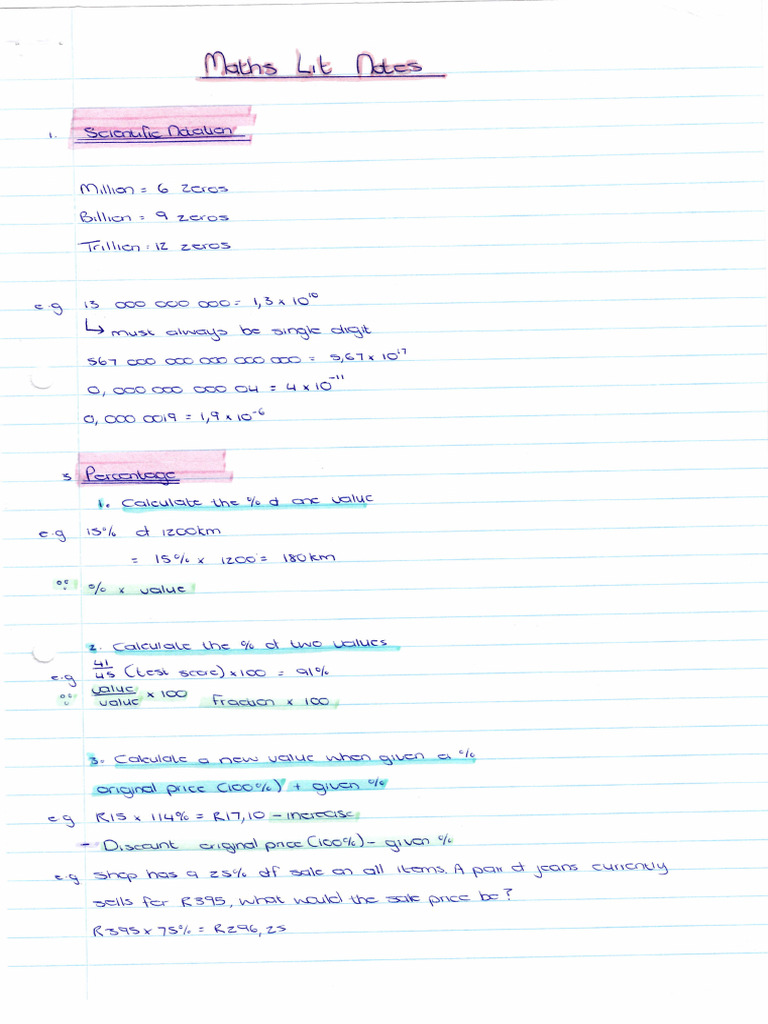 Maths Lit Notes
1. Scientific Notation
Million = 6 zeros
Billion = 9 zeros
Trillion = 12 zeros
e.g 13 000 000 000 = 1,3 x 10^10
↳ must always be single digit
567 000 000 000 000 000 = 5,67 x 10^17
0, 000 000 000 04 = 4 x 10^-11
0, 000 0019 = 1,9 x 10^-6
5 Percentage
1. Calculate the % of one value
e.g 15% of 1200km
= 15% x 1200 = 180km
% x value
2. Calculate the % of two values
e.g 41/45 (test score) x 100 = 91%
value/value x 100 Fraction x 100
3. Calculate a new value when given a %
original price (100%) + given %
e.g R15 x 114% = R17,10 - increase
- Discount original price (100%) - given %
e.g Shop has a 25% off sale on all items. A pair of jeans currently
sells for R395, what would the sale price be?
R395 x 75% = R296,25